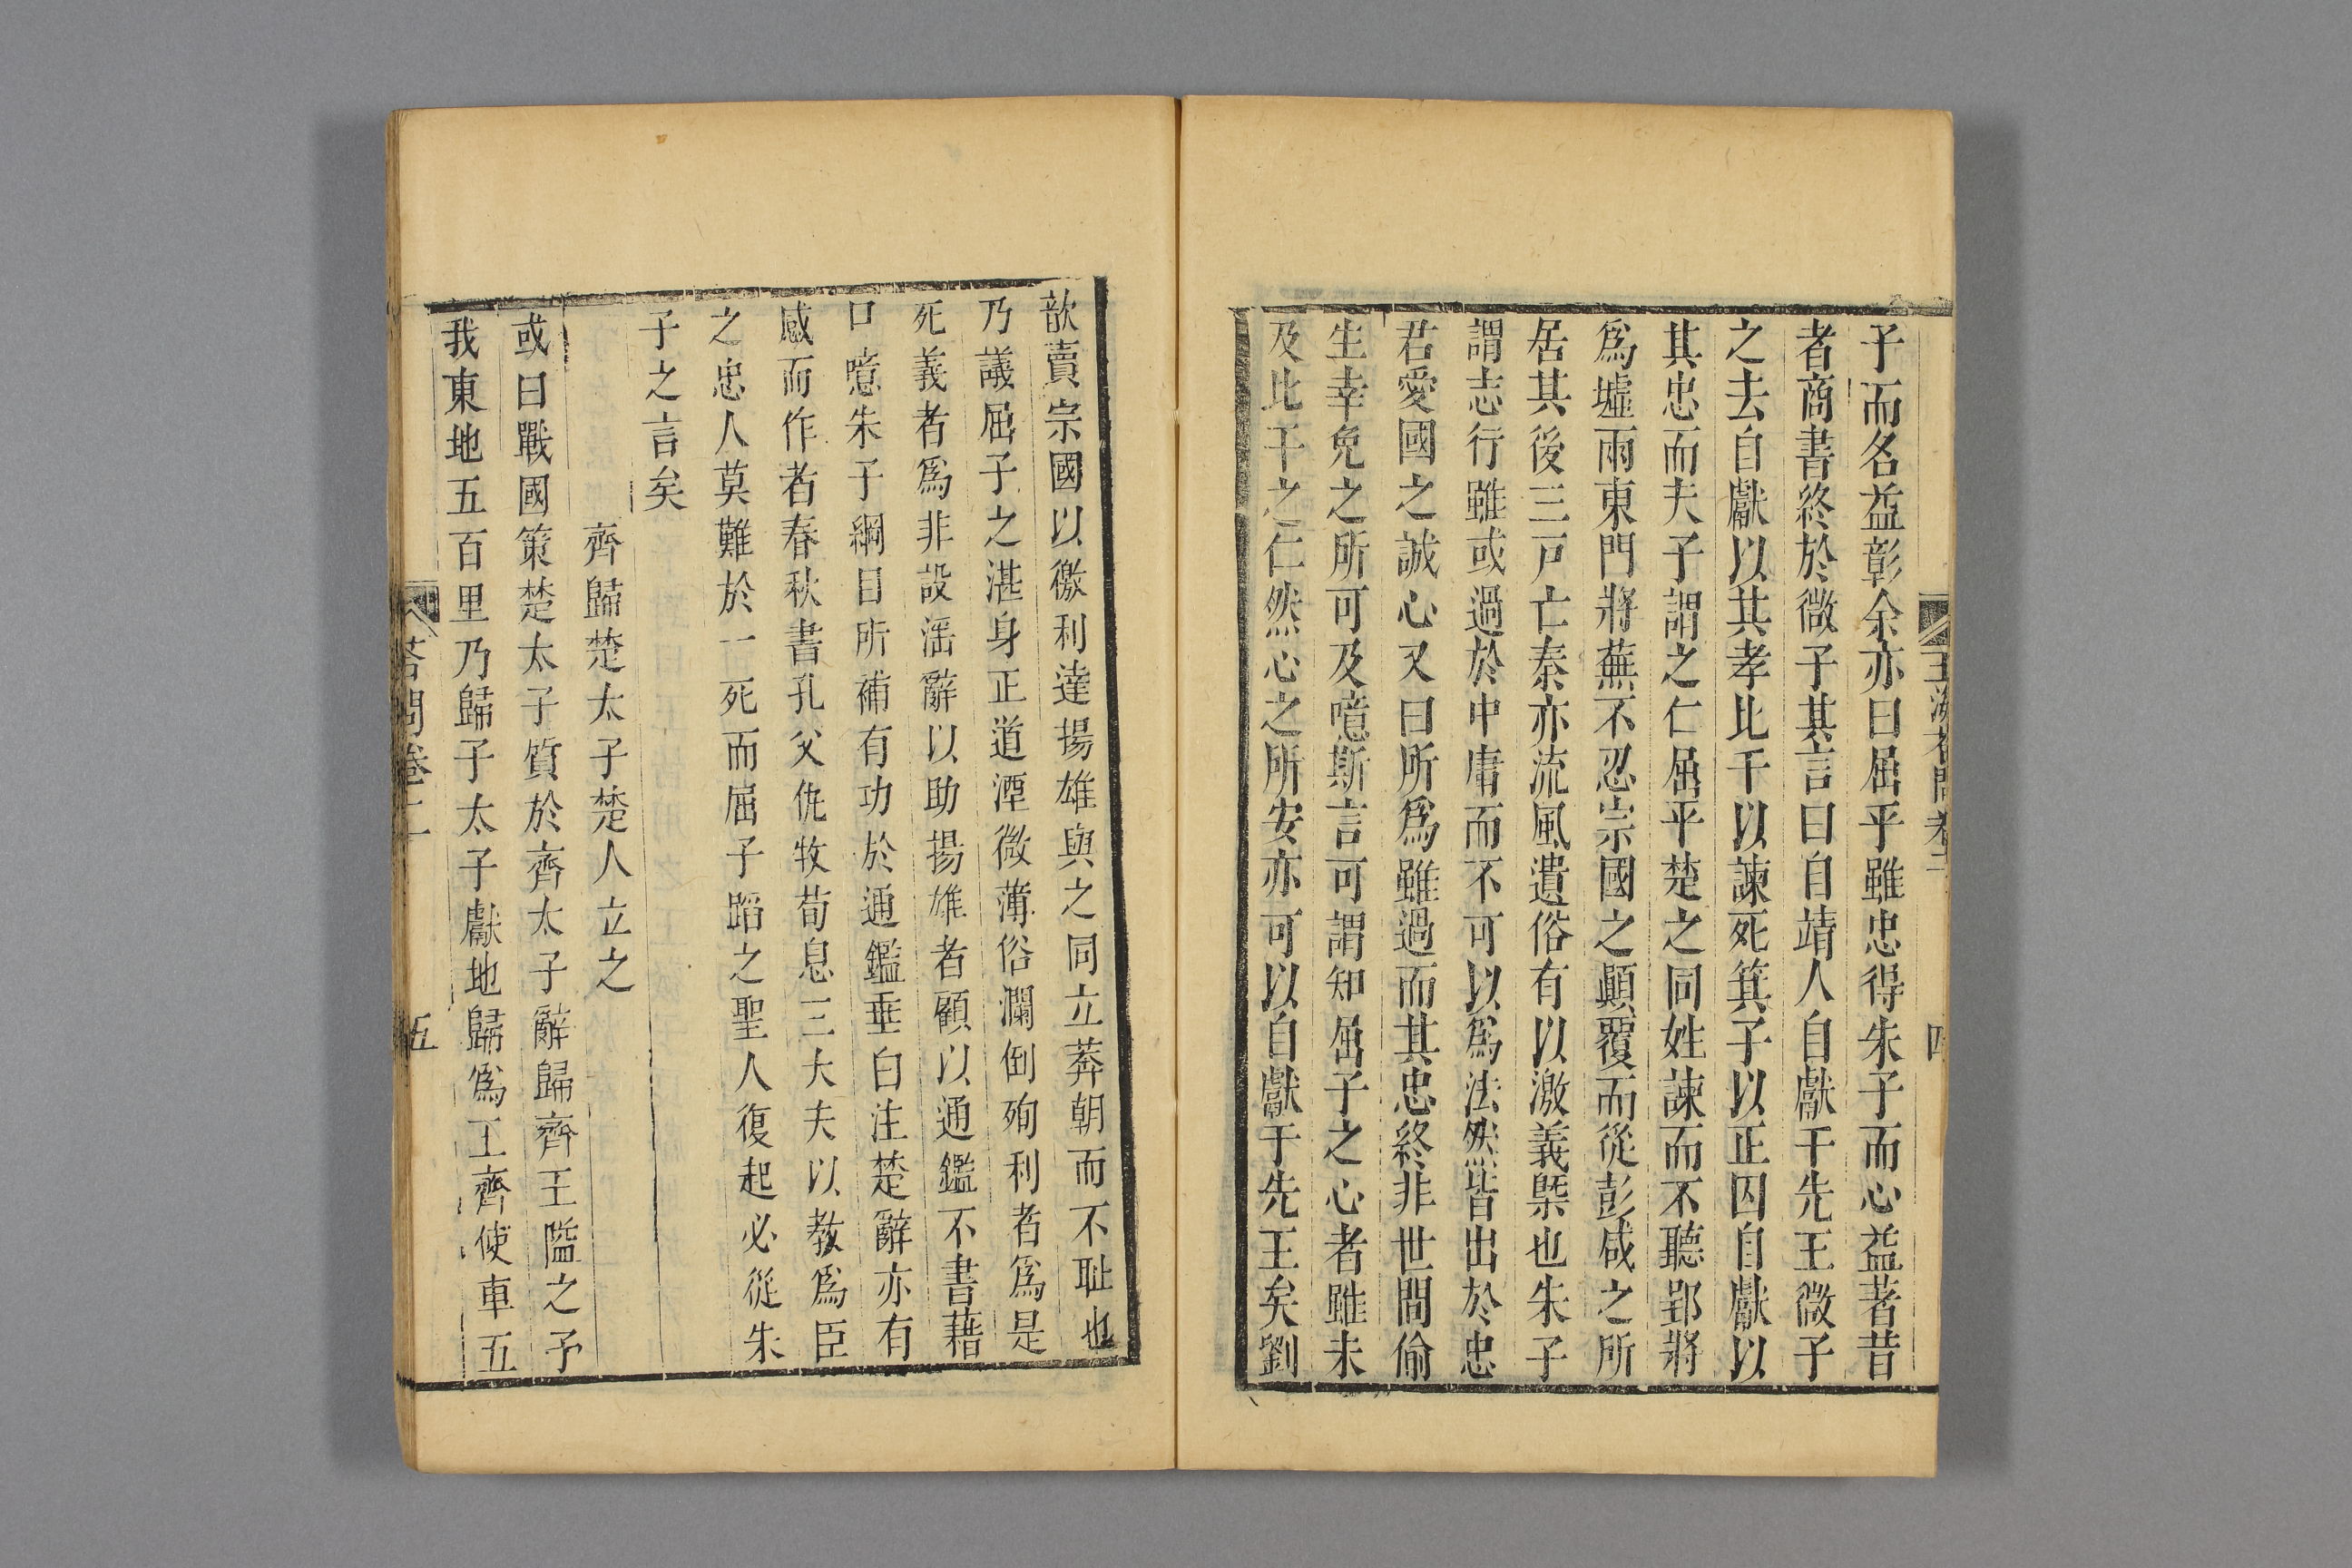 子而名益彰余亦曰屈平雖忠得朱子而心益著昔
者商書終於微子其言曰自靖人自獻于先王微子
之去自獻以其孝比干以諫死箕子以正囚自獻以
其忠而夫子謂之仁屈平楚之同姓諫而不聽郢將
爲墟兩東門將蕪不忍宗國之顚覆而從彭咸之所
居其後三戸亡秦亦流風遺俗有以激義槩也朱子
謂志行雖或過於中庸而不可以爲法然皆出於忠
君愛國之誠心又曰所爲雖過而其忠終非世間偷
生幸免之所可及噫斯言可謂知屈子之心者雖未
及比干之仁然心之所安亦可以自獻于先王矣劉
歆賣宗國以徼利達揚雄與之同立莽朝而不耻也
乃議屈子之湛身正道湮微薄俗瀾倒殉利者爲是
死義者爲非設滛辭以助揚雄者顧以通鑑不書藉
口噫朱子綱目所補有功於通鑑垂白注楚辭亦有
感而作者春秋書孔父仇牧荀息三大夫以敎爲臣
之忠人莫難於一死而屈子蹈之聖人復起必從朱
子之言矣
齊歸楚太子楚人立之
或曰戰國策楚太子質於齊太子辭歸齊王隘之予
我東地五百里乃歸子太子獻地歸爲王齊使車五
荅問卷二
五